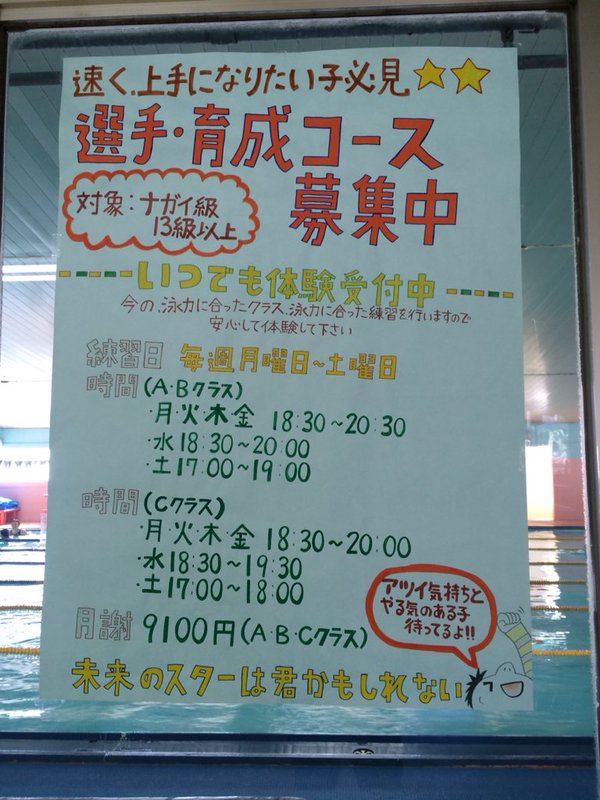 速く、上手になりたい子必見
選手・育成コース
募集中
対象：ナガイ級
13級以上
いつでも体験受付中
今の、泳力に合ったクラス、泳力に合った練習を行いますので
安心して体験して下さい
練習日 毎週月曜日〜土曜日
時間(A・Bクラス)
・月・火・木・金 18:30〜20:30
・水18:30〜20:00
・土17:00〜19:00
時間(Cクラス)
・月・火・木・金 18:30〜20:00
・水18:30〜19:30
・土17:00〜18:00
月謝 9100円(A・B・Cクラス)
アツイ気持ちと
やる気のある子
待ってるよ!!
未来のスターは君かもしれない